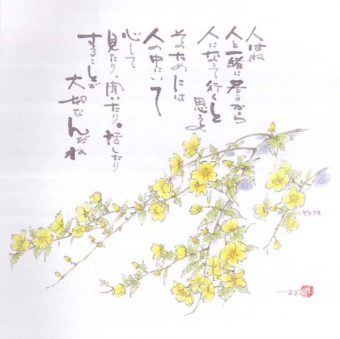 人はね
人と一緒に居るから
人になって行くと
思うよ
そのためには
人の中にいて
心して
見たり、聞いたり。話したり
することが
大切なんだね
ヤマブキ